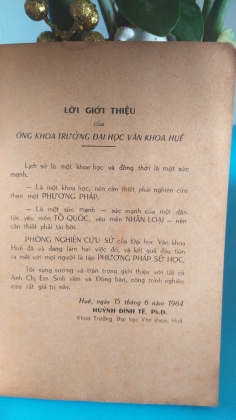 LỜI GIỚI THIỆU
của
ÔNG KHOA TRƯỞNG ĐẠI HỌC VĂN KHOA HUẾ
Lịch sử là một khoa học và đồng thời là một sức
mạnh.
— Là một khoa học, nên cần thiết phải nghiên cứu
theo một PHƯƠNG PHÁP.
— Là một sức mạnh — sức mạnh của một dân
tộc yêu mến TỔ QUỐC, yêu mến NHÂN LOẠI — nên
cần thiết phải tài bồi.
PHÒNG NGHIÊN CỨU SỬ của Đại học Văn khoa
Huế đã và đang làm hai việc đó, và kết quả đầu tiên
ra mắt với mọi người là tập PHƯƠNG PHÁP SỬ HỌC.
Tôi sung sướng và trân trọng giới thiệu với tất cả
Anh Chị Em Sinh viên và Đồng bào, công trình nghiên
cứu rất giá trị này.
Huế, ngày 15 tháng 6 năm 1964
HUỲNH ĐÌNH TẾ, Ph.D.
Khoa Trưởng Đại học Văn khoa, Huế